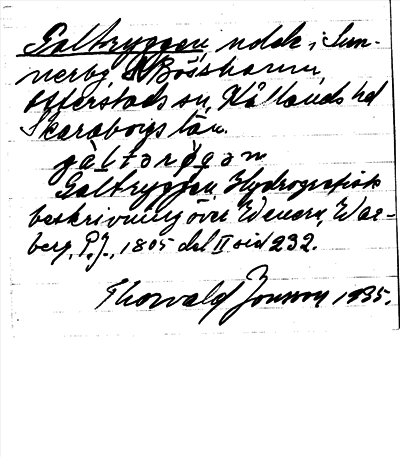 Galtryggen, udde i Sun-
nerby, Bösshamn,
Otterstads sn, Kållands hd
Skaraborgs län.
Galtryggen, Hydrografisk
beskrivning över Wenern, War-
berg, P.J., 1805 del II sid 232.
Thorvald Jonsson 1935.